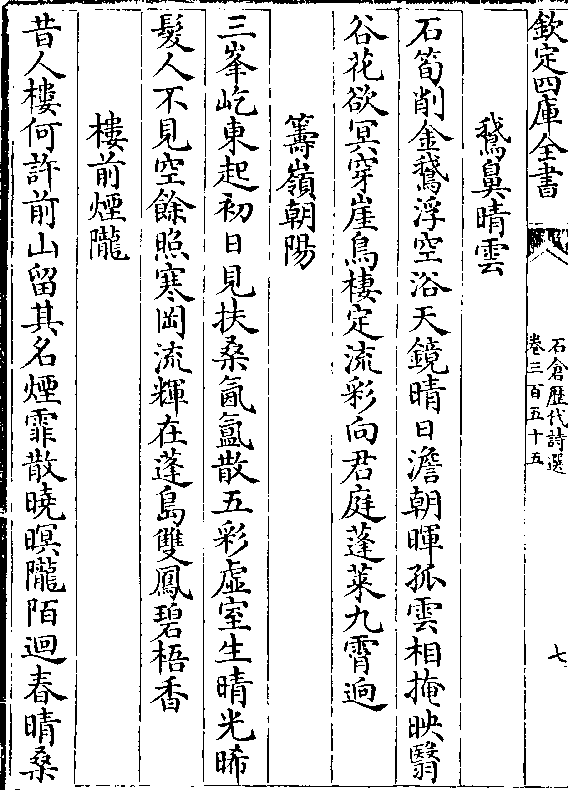 欽定四庫全書
石倉歴代詩選
卷三百五十五
七
鵝鼻晴雲
石筍削金鵝浮空浴天鏡晴日澹朝暉孤雲相掩映翳
谷花欲冥穿崖鳥棲定流彩向君庭蓬萊九霄逈
籌嶺朝陽
三峯屹東起初日見扶桑氤氲散五彩虚室生晴光晞
髮人不見空餘照寒岡流輝在蓬島雙鳳碧梧香
樓前煙隴
昔人樓何許前山留其名煙霏散曉暝隴陌迴春晴桑